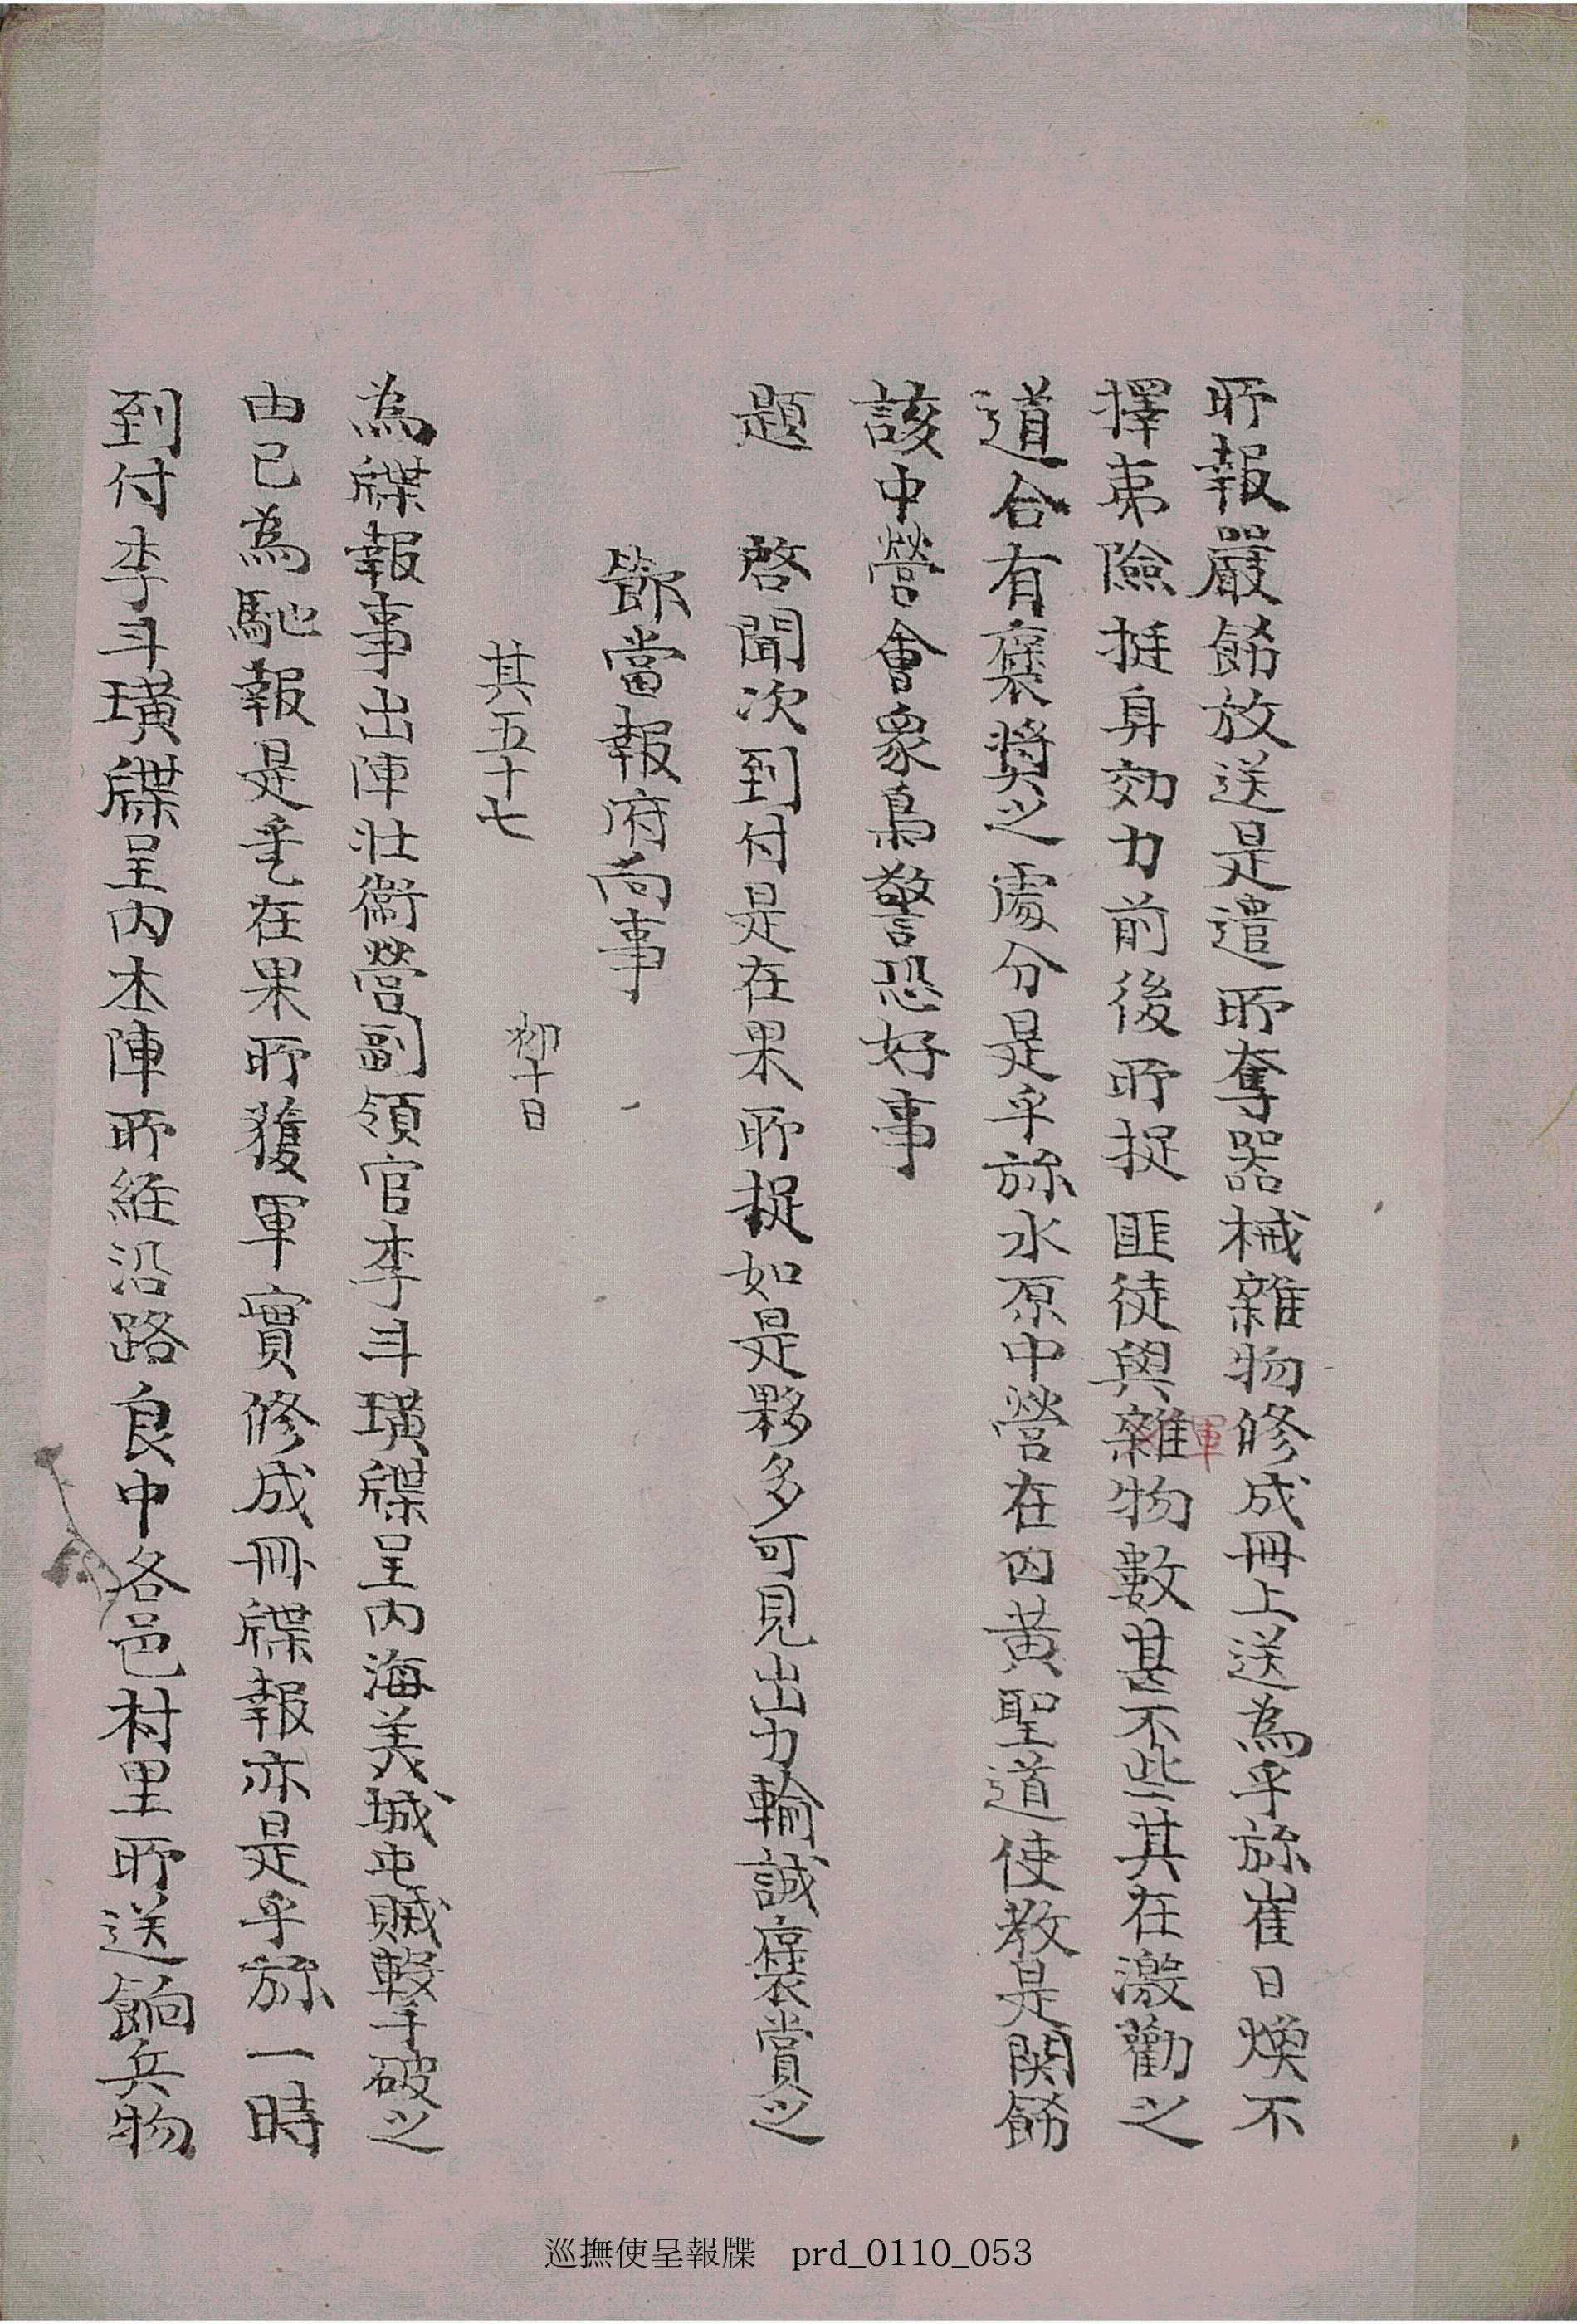 所報嚴飭放送是遣所奪器械雜物修成冊上送爲乎旀崔日煥不
擇夷險挺身効力前後所捉匪徒與雜物數甚不些其在激勸之
軍
道合有褒奬之處分是乎旀水原中營在囚黃聖道使敎是関飭
該中營會衆梟警恐好事
題 啓聞次到付是在果所捉如是夥多可見出力輸誠褒賞之
節當報府向事
其五十七 初十日
為牒報事出陣壯衛營副領官李斗璜牒呈內海美城屯賊擊破之
由已為馳報是乎在果所獲軍實修成冊牒報亦是乎旀一時
到付李斗璜牒呈內本陣所経沿路良中各邑村里所送餉兵物
巡撫使呈報牒 prd_0110_053